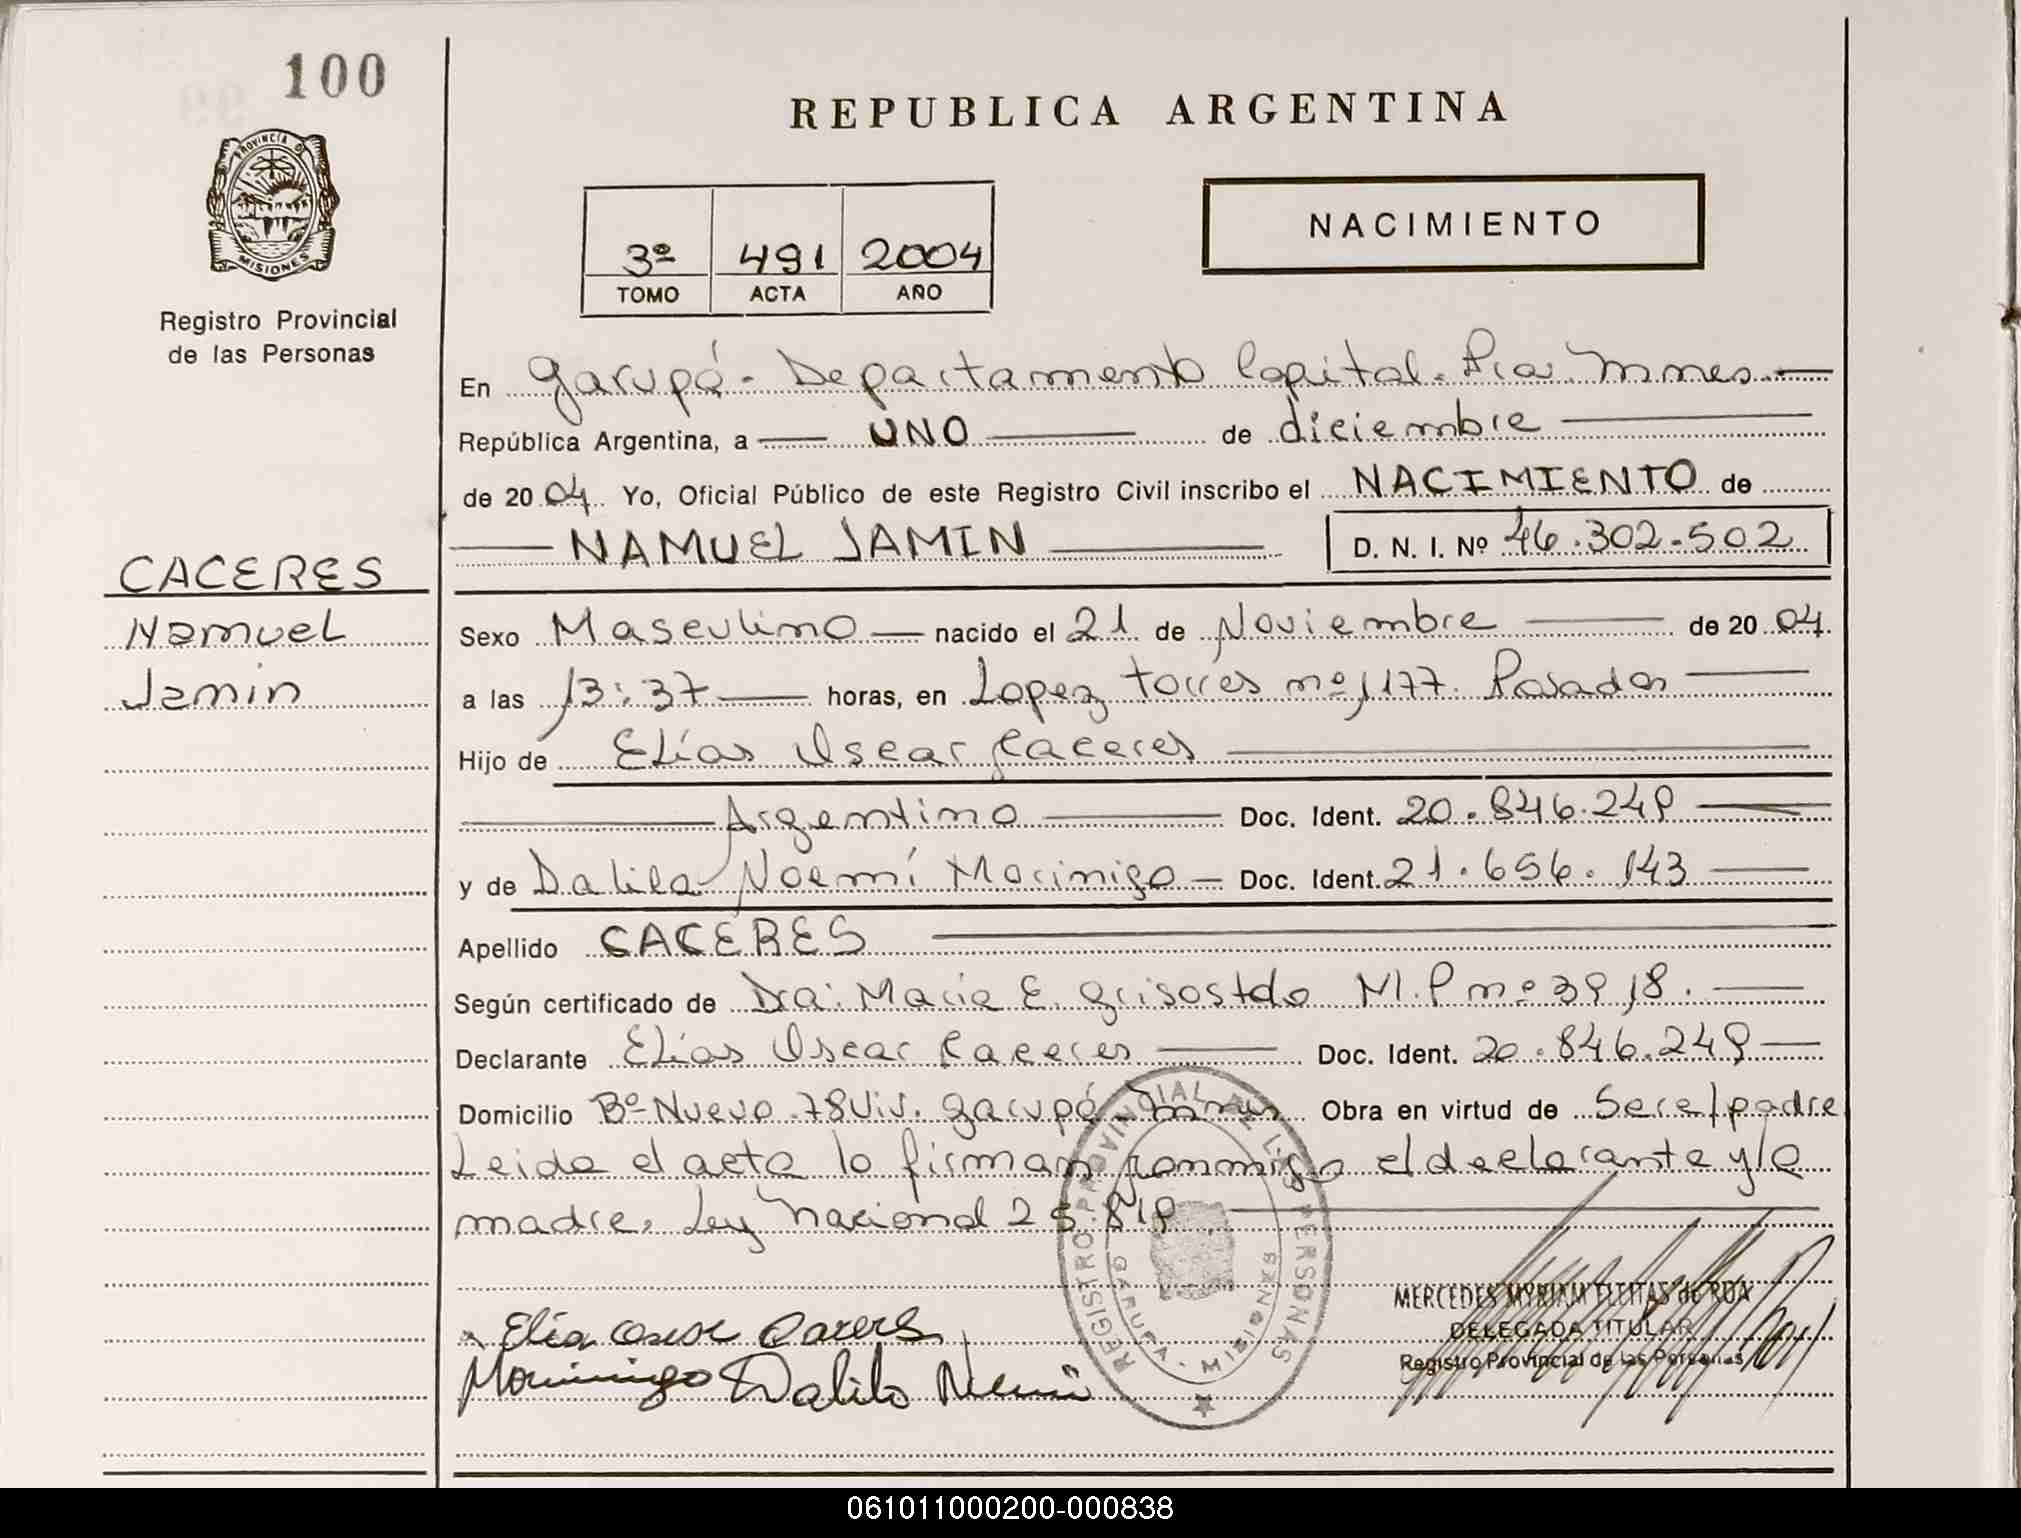 100
PROVINCIA DE
MISIONES
Registro Provincial
de las Personas
CACERES
Namuel
Jamin
REPUBLICA ARGENTINA
3º 491 2004
TOMO ACTA AÑO
NACIMIENTO
En Garupá - Departamento Capital. Pcia. Mnes.
República Argentina, a UNO de diciembre
de 2004. Yo, Oficial Público de este Registro Civil inscribo el NACIMIENTO de
NAMUEL JAMIN D. N. I. Nº 46.302.502
Sexo Masculino nacido el 21 de Noviembre de 2004.
a las 13:37 horas, en Lopez Torres nº 1177. Posadas
Hijo de Elías Oscar Caceres
Argentino Doc. Ident. 20.846.249
y de Dalila Noemí Morinigo Doc. Ident. 21.656.143
Apellido CACERES
Según certificado de Dra. Maria E. M.P nº 3918.
Declarante Elías Oscar Caceres Doc. Ident. 20.846.249
Domicilio Bº Nuevo. 78 Viv. Garupá Mnes Obra en virtud de Ser el padre
Leida el acta lo firman conmigo el declarante y la
madre. Ley Nacional 25.819
REGISTRO PROVINCIAL DE LAS PERSONAS
GARUPA - MISIONES
Elia Oscar Caceres
Morinigo Dalila Noemi
MERCEDES MYRIAM FLEITAS de ROA
DELEGADA TITULAR
Registro Provincial de las Personas
061011000200-000838